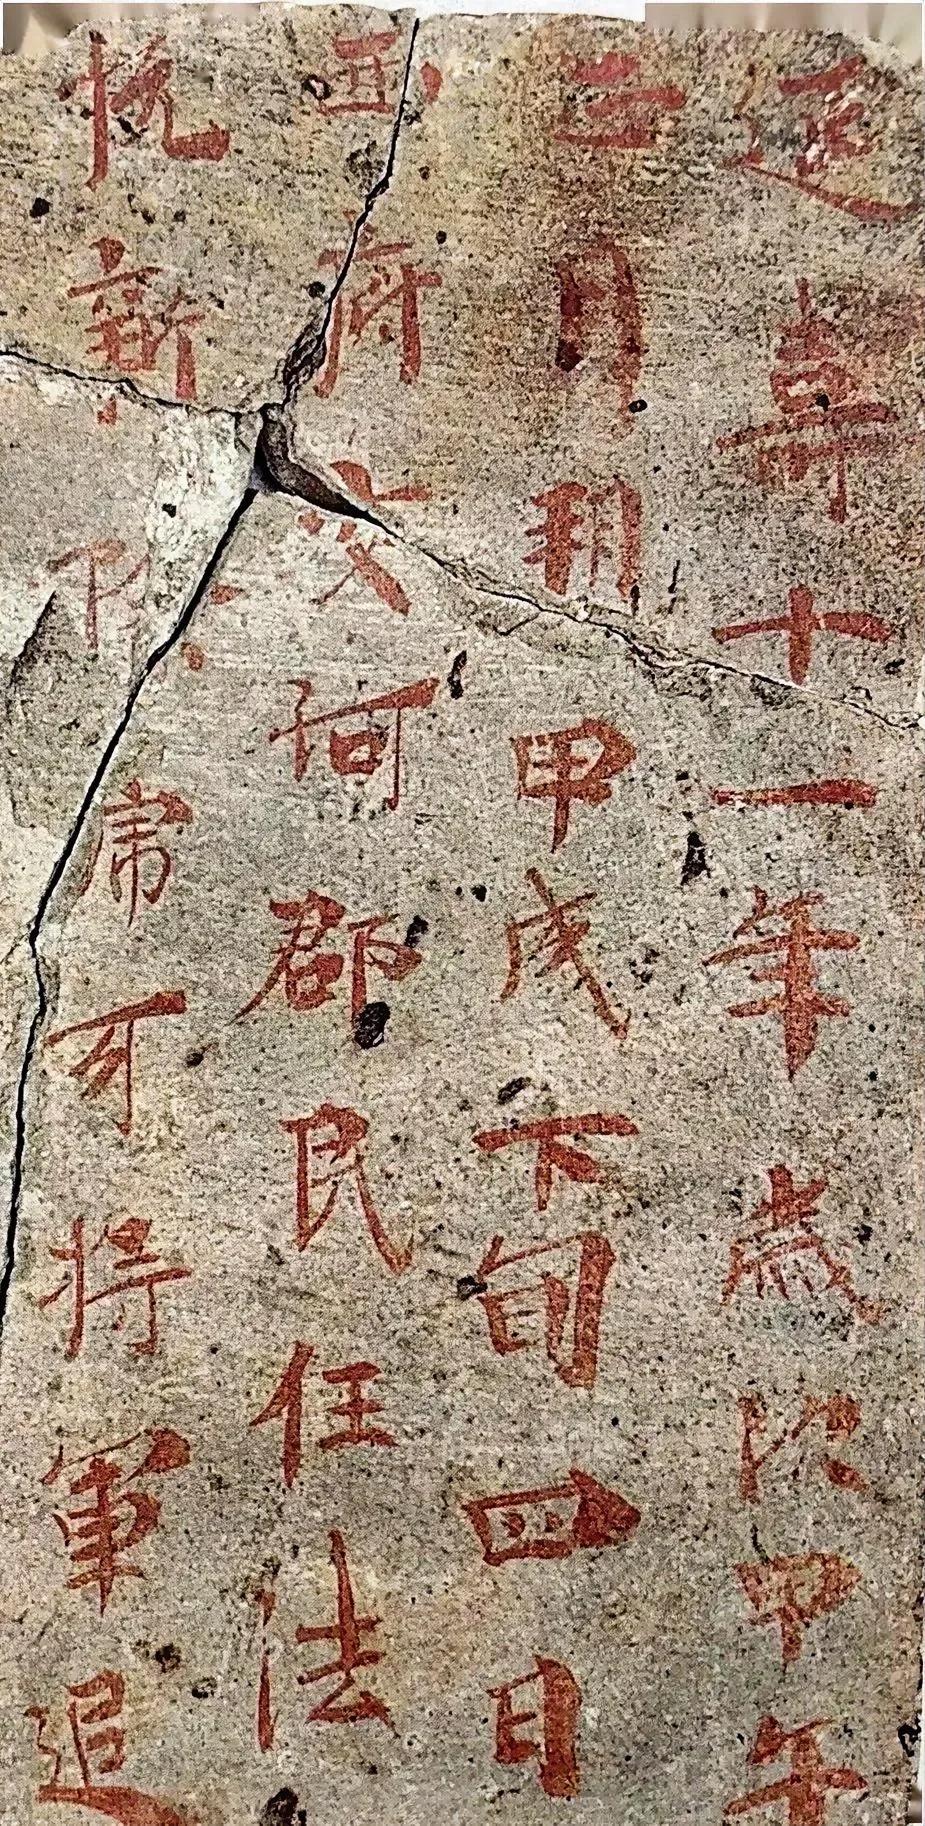 延壽十一年歲次甲午
三月朔甲戌下旬四日
西府交河郡民任法
悅新除虎牙將軍追